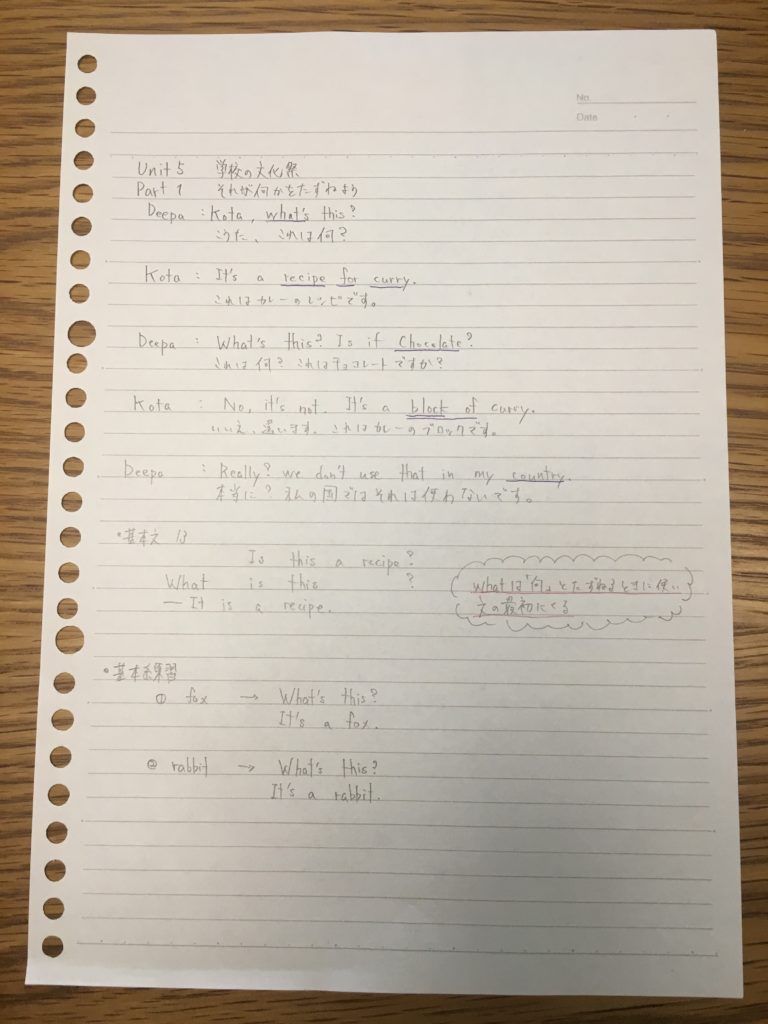 No.
Date
Unit 5 学校の文化祭
Part 1 それが何かをたずねよう
Deepa : Kota, what's this?
こうた、これは何?
Kota : It's a recipe for curry.
これはカレーのレシピです。
Deepa : What's this? Is it Chocolate?
これは何? これはチョコレートですか?
Kota : No, it's not. It's a block of curry.
いいえ、違います。これはカレーのブロックです。
Deepa : Really? we don't use that in my country.
本当に? 私の国ではそれは使わないです。
・基本文 13
Is this a recipe?
What is this ?
— It is a recipe.
whatは「何」とたずねるときに使い
文の最初にくる
・基本練習
① fox → What's this?
It's a fox.
② rabbit → What's this?
It's a rabbit.